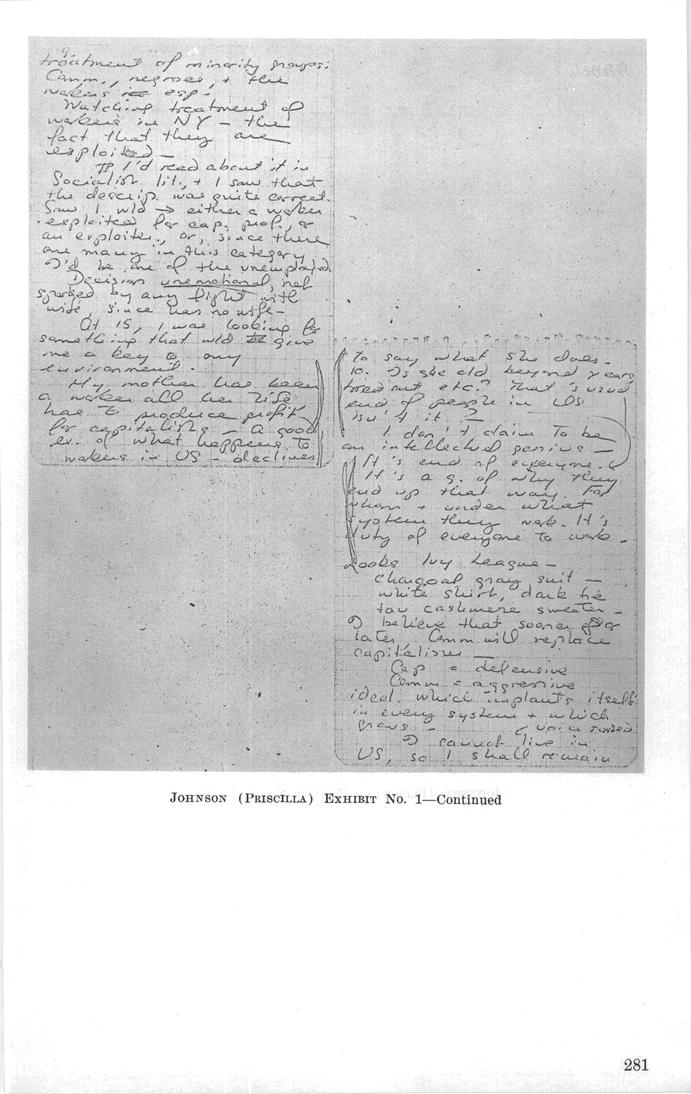 9.
treatment of minority groups:
Comm., negroes, + the
workers esp.
Watching treatment of
workers in NY – the
fact that they are
exploited –
I'd read about it in
Socialist lit., + I saw that
the descrip. was quite correct.
Saw I wld → either a worker
exploited for cap. prof., or
an exploiter, or, since there
are many in this category
I'd be one of the unemployed.
Decision unemotional, not
sparked by any fight with
wife, since has no wife –
At 15, I was looking for
something that wld give
me a key to my
environment.
My mother has been
a worker all her life
has to produce profit
for capitalists – A good
ex. of what happens to
workers in US – declines
to say what she does.
10. Is she old beyond years,
worn out etc.? That's usual
end of people in US
isn't it –?
I don't claim to be
an intellectual genius –
It's end of everyone.
It's a q. of why they
end up that way. For
whom + under what
system they work. It's
duty of everyone to work.
Looks Ivy League –
charcoal gray suit –
white shirt, dark tie
tan cashmere sweater –
I believe that sooner or
later Comm will replace
capitalism –
Cap = defensive
Comm = aggressive
ideal which implants itself
in every system + which
grows – voice
I cannot live in
US, so I shall remain
JOHNSON (PRISCILLA) EXHIBIT No. 1—Continued
281